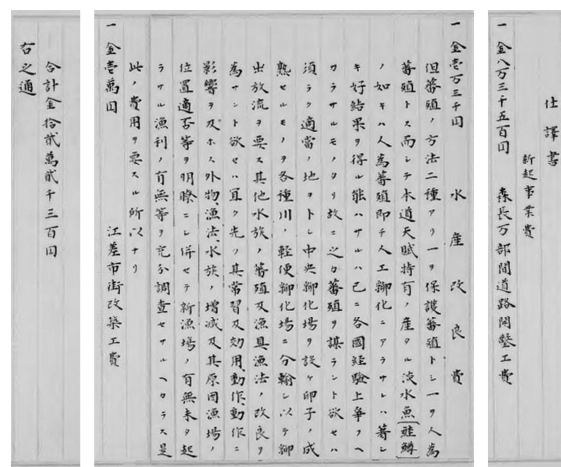 仕譯書
新起事業費
一金八万三千五百円　森長万部間道路開鑿工費
一金壱万三千円　水産改良費
但蕃殖ノ方法二種アリ一ヲ保護蕃殖トシ一ヲ人為
蕃殖トス而シテ本道天賦特有ノ産タル淡水魚（鮭鱒
ノ如キハ人為蕃殖即チ人工孵化ニアラサレハ著シ
キ好結果ヲ得ル能ハサルハ已ニ各國経験上争フヘ
カラサルモノタリ故ニ之カ蕃殖ヲ謀ラント欲セハ
須ラク適當ノ地ヲトシ中央孵化場ヲ設ケ卵子ノ成
熟セルモノヲ各種川ノ軽便孵化場ニ分輸シ以テ孵
出放流ヲ要ス其他水族ノ蕃殖及漁具漁法ノ改良ヲ
為サント欲セハ宜ク先ツ其常習及効用、動作、動作ニ
影響ヲ及ホス外物、漁法、水族ノ増減及其原因漁場ノ
位置適否等ヲ明瞭ニシ併セテ新漁場ノ有無未タ起
ラサル漁利ノ有無等ヲ充分調査セサルヘカラス是
此ノ費用ヲ要スル所以ナリ
一金壱萬円　江差市街改築工費
合計金拾貳萬貳千三百円
右之通